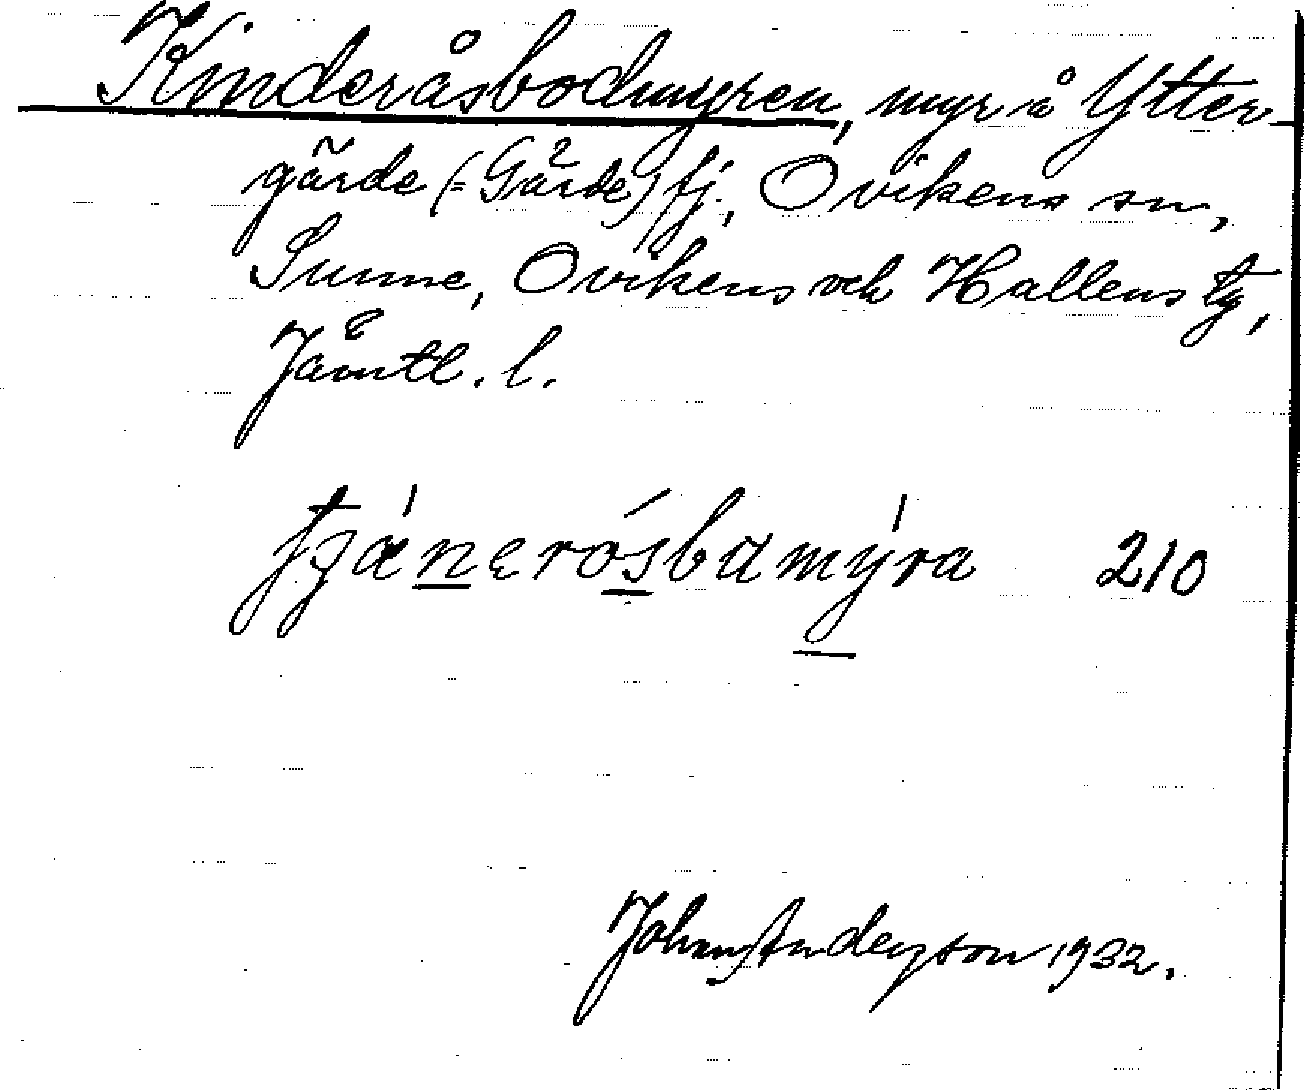 Kinderåsbodmyren, myr å Ytter-
gärde (= Gärde) fj., Ovikens sn,
Sunne, Ovikens och Hallens tg,
Jämtl. l.
210
Johan Anderson 1932.